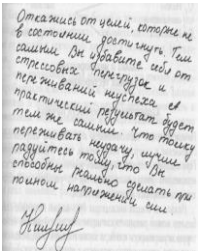 Откажись от целей, которые не
в состоянии достигнуть. Тем
самым Вы избавите себя от
стрессовых перегрузок и
переживаний неуспеха. А
практический результат будет
тем же самым. Что толку
переживать неудачу, лучше
радуйтесь тому, что Вы
способны реально сделать при
полном напряжении сил.